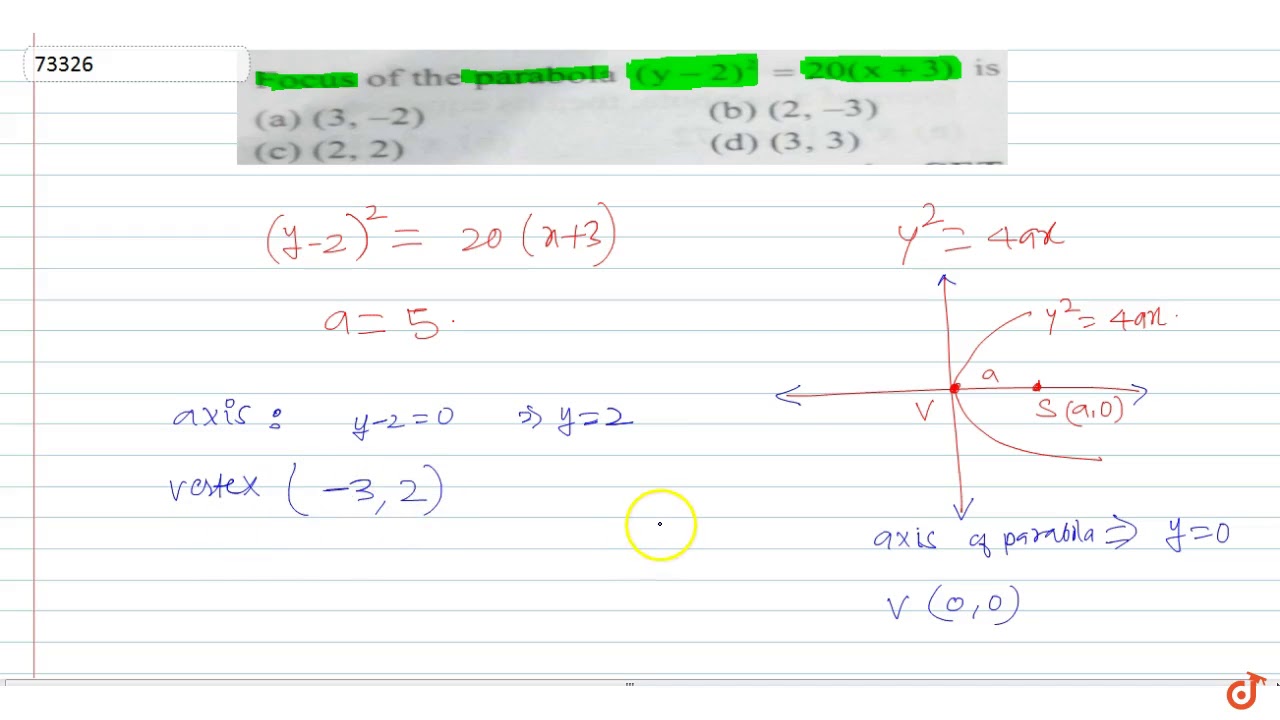 73326
Focus of the parabola (y – 2)² = 20(x + 3) is
(a) (3, –2) (b) (2, –3)
(c) (2, 2) (d) (3, 3)
(y-2)² = 20 (x+3)
y² = 4ax
a = 5.
y² = 4ax.
a
V S(a,0)
axis : y-2=0 ⇒ y=2
vertex (-3, 2)
axis of parabola ⇒ y=0
V (0,0)